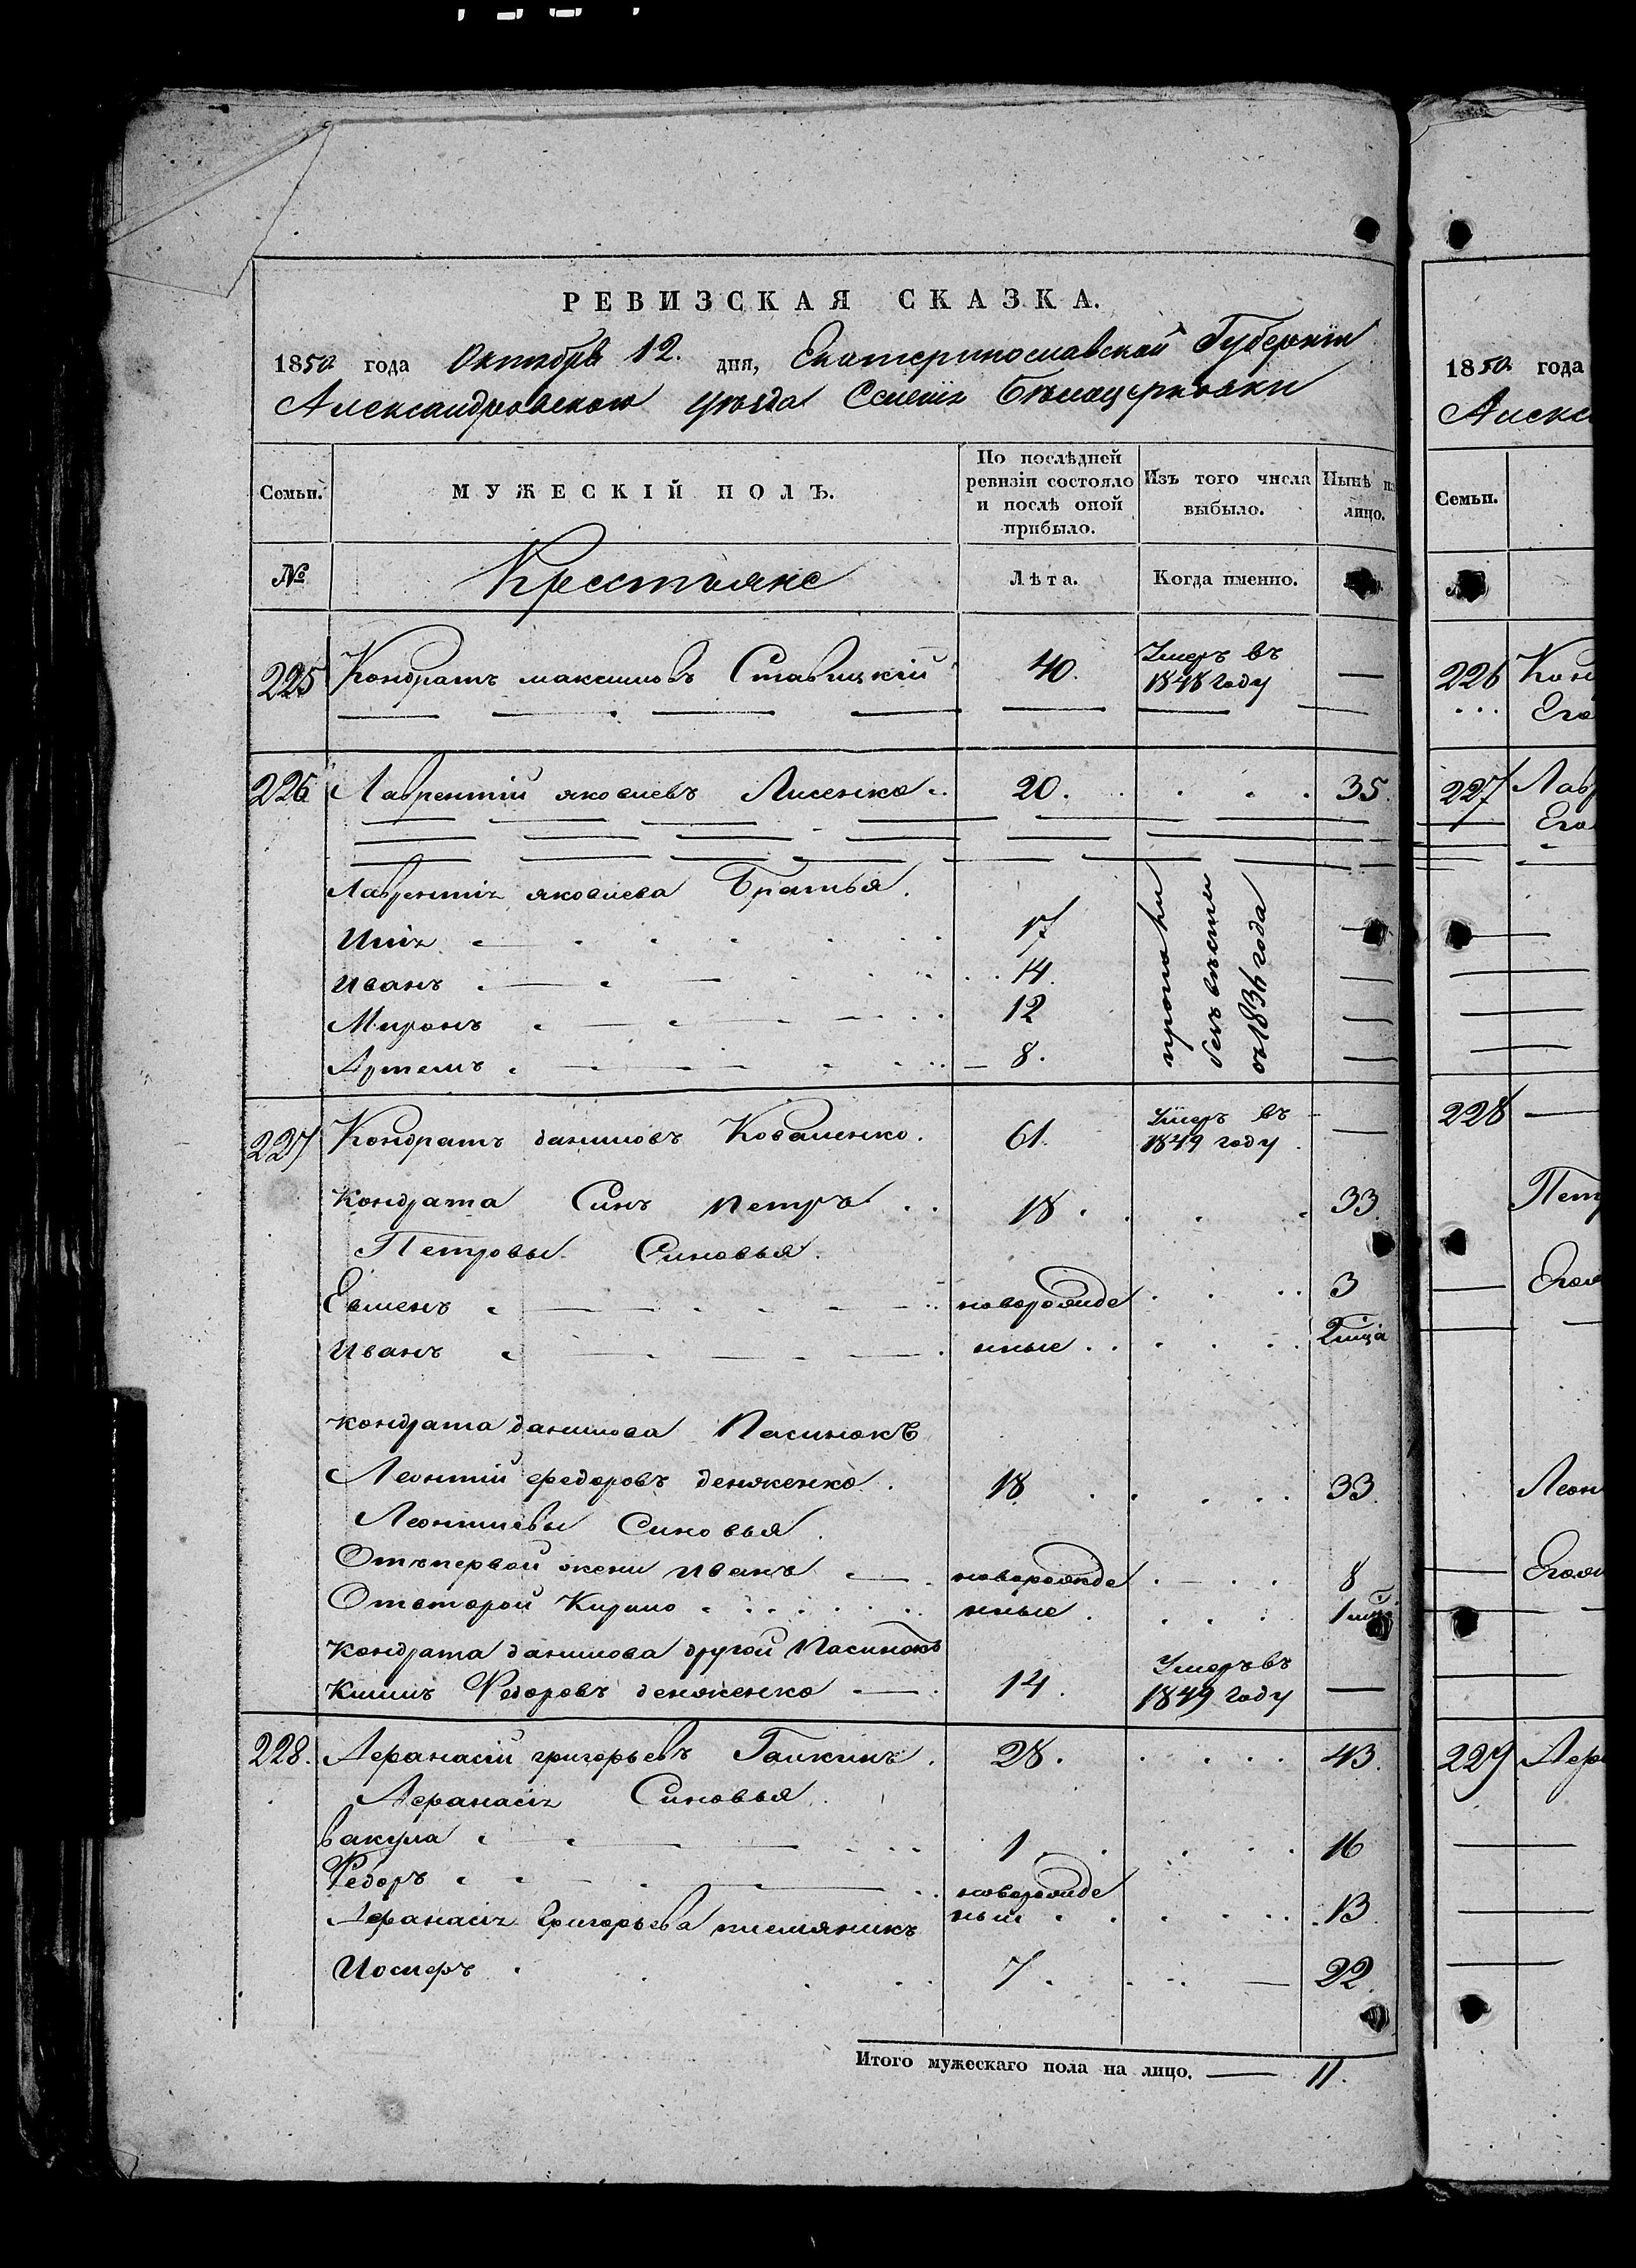 РЕВИЗСКАЯ СКАЗКА.
1850 года Октября 12. дня, Екатеринославской Губернiи
Александровского уѣзда Селенiя Бѣлацерковки
Семьи.
МУЖЕСКIЙ ПОЛЪ.
По послѣдней ревизiи состояло и послѣ оной прибыло.
Изъ того числа выбыло.
Нынѣ на лицо.
№
Крестьяне
Лѣта.
Когда именно.
225 Кондратъ максимовъ Ставицкiй 40. Умеръ въ 1848 году —
226 Лаврентiй яковлевъ Лисенко 20. 35.
Лаврентiя яковлева Братья.
Илiя 17 —
Иванъ 14. —
Миронъ 12 —
Артемъ 8. —
безъ вѣсти
съ 1836 года
227 Кондратъ даниловъ Коваленко. 61. Умеръ въ 1849 году —
Кондрата Синъ Петръ 18. 33.
Петровы Синовья.
Евменъ новорожде 3
Иванъ нные 2 мца
Кондрата данилова Пасинокъ
Леонтiй федоровъ деняженко. 18. 33.
Леонтиевы Синовья.
Отъ первой жени Иванъ новорожде 8
От второй Кирило нные. 1 мца
Кондрата данилова другой Пасинокъ
Климъ Федоровъ деняженко 14. Умеръ въ 1849 году —
228. Афанасiй григорьевъ Галкинъ. 28. 43.
Афанасiя Синовья.
Вакула 1. 16
Федоръ новорожде
ный 13.
Афанасiя Григорьева племяникъ
Иосифъ 7. 22.
Итого мужескаго пола на лицо. — 11.
1850 года
Алекс
Семьи.
226 Кон
Его
227 Лав
Его
228 —
Пет
Леон
229 Афа